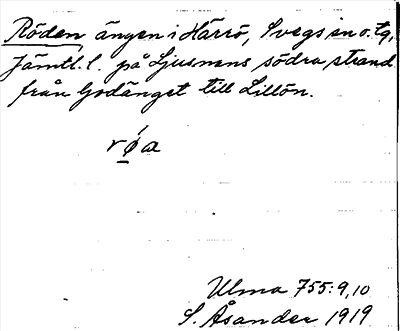 Röden, ängen i Härrö, Svegs sn o. tg,
Jämtl. l. på Ljusnans södra strand
från Godänget till Lillön.
røa
Ulma 755:9,10
S. Åsander 1919